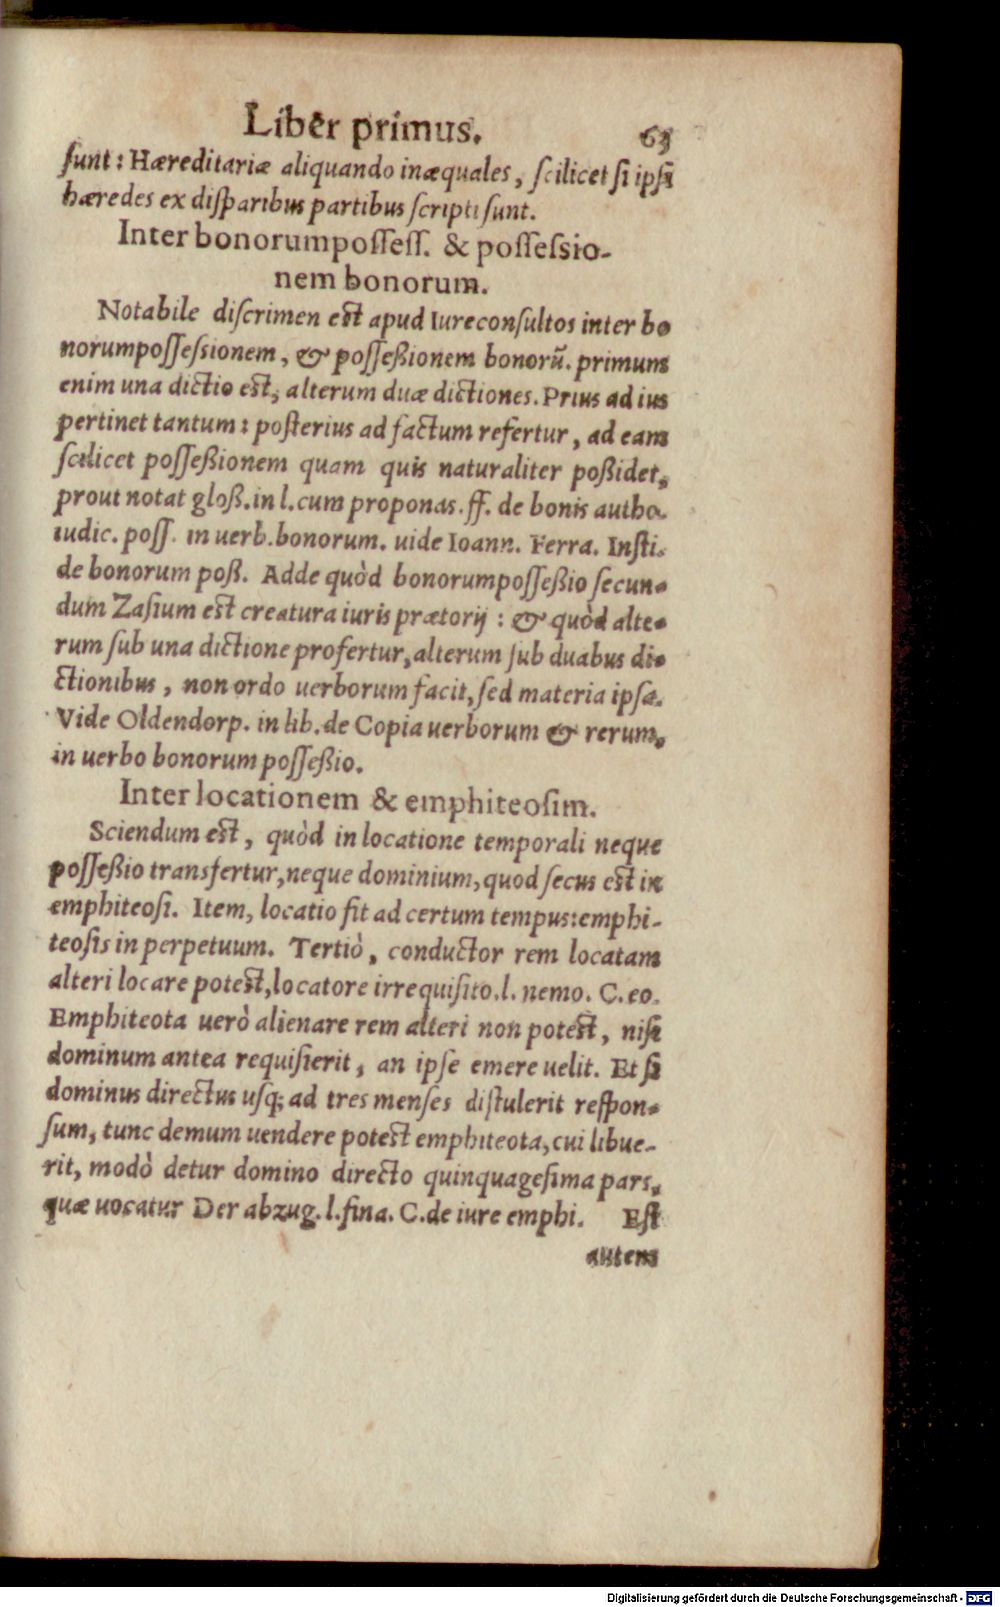 Liber primus. 63
ſunt: Hæreditariæ aliquando inæquales, ſcilicet ſi ipſi
hæredes ex diſparibus partibus ſcripti ſunt.
Inter bonorumpoſſeſſ. & poſſeſsio-
nem bonorum.
Notabile diſcrimen eſt apud Iureconſultos inter bo
norumpoſſeſsionem, & poſſeßionem bonorũ. primum
enim una dictio eſt, alterum duæ dictiones. Prius ad ius
pertinet tantum: poſterius ad factum refertur, ad eam
ſcilicet poſſeßionem quam quis naturaliter poßidet,
prout notat gloß. in l. cum proponas. ff. de bonis autho.
iudic. poſſ. in uerb. bonorum. uide Ioann. Ferra. Inſti.
de bonorum poß. Adde quòd bonorumpoſſeßio ſecun-
dum Zaſium eſt creatura iuris prætorij: & quòd alte-
rum ſub una dictione profertur, alterum ſub duabus di-
ctionibus, non ordo uerborum facit, ſed materia ipſa.
Vide Oldendorp. in lib. de Copia uerborum & rerum,
in uerbo bonorum poſſeßio.
Inter locationem & emphiteoſim.
Sciendum eſt, quòd in locatione temporali neque
poſſeßio transfertur, neque dominium, quod ſecus eſt in
emphiteoſi. Item, locatio fit ad certum tempus: emphi-
teoſis in perpetuum. Tertiò, conductor rem locatam
alteri locare poteſt, locatore irrequiſito. l. nemo. C. eo.
Emphiteota uerò alienare rem alteri non poteſt, niſi
dominum antea requiſierit, an ipſe emere uelit. Et ſi
dominus directus uſq; ad tres menſes diſtulerit reſpon-
ſum, tunc demum uendere poteſt emphiteota, cui libue-
rit, modò detur domino directo quinquageſima pars,
quæ uocatur Der abzug. l. fina. C. de iure emphi. Eſt
autem
Digitalisierung gefördert durch die Deutsche Forschungsgemeinschaft - DFG